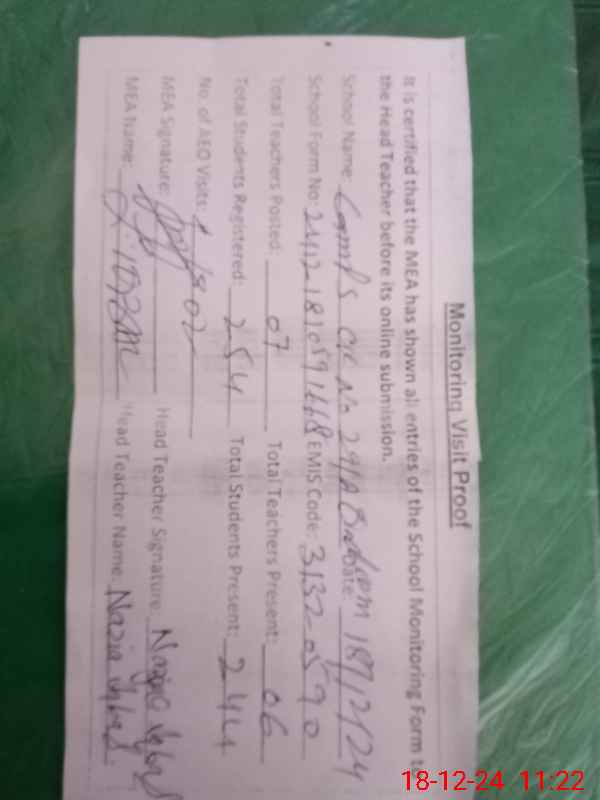 Monitoring Visit Proof
It is certified that the MEA has shown all entries of the School Monitoring Form t
the Head Teacher before its online submission.
School Name: No 29/A Date: 18/12/24
School Form No: EMIS Code: 31320590
Total Teachers Posted: 07 Total Teachers Present: 06
Total Students Registered: 254 Total Students Present: 244
No. of AEO Visits:
MEA Signature: Head Teacher Signature: Nazia
MEA Name: Head Teacher Name: Nazia
18-12-24 11:22